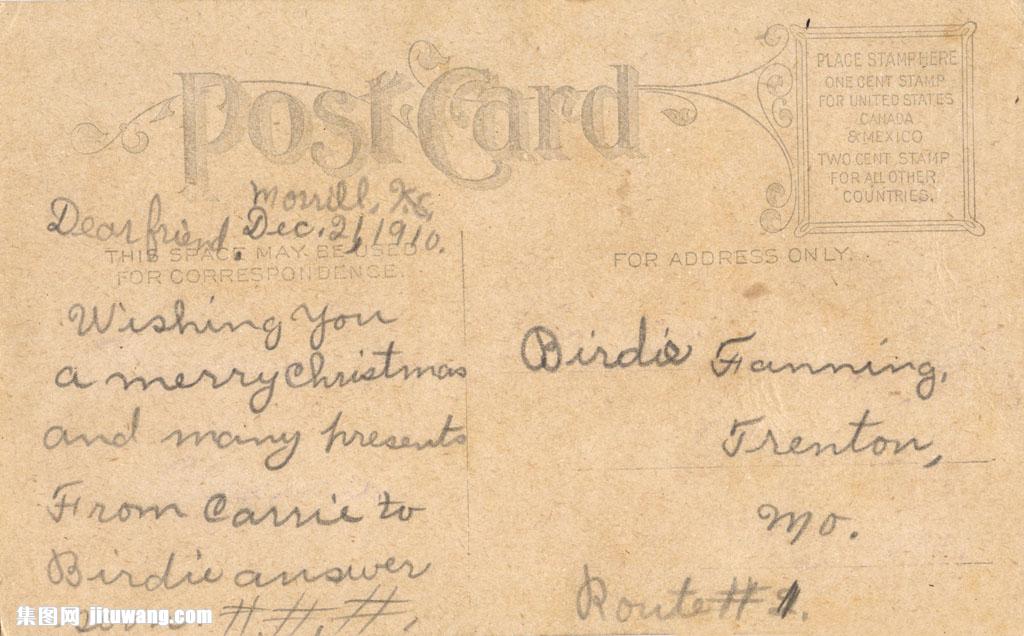 Post Card
PLACE STAMP HERE
ONE CENT STAMP
FOR UNITED STATES
CANADA
& MEXICO
TWO CENT STAMP
FOR ALL OTHER
COUNTRIES.
Morrill, Ks,
Dear friend. Dec. 21, 1910.
THIS SPACE MAY BE USED
FOR CORRESPONDENCE.
Wishing you
a merry Christmas
and many presents
From Carrie to
Birdie answer
soon. #. #. #.
FOR ADDRESS ONLY.
Birdie Fanning,
Trenton,
Mo.
Route # 1.
集图网 jituwang.com